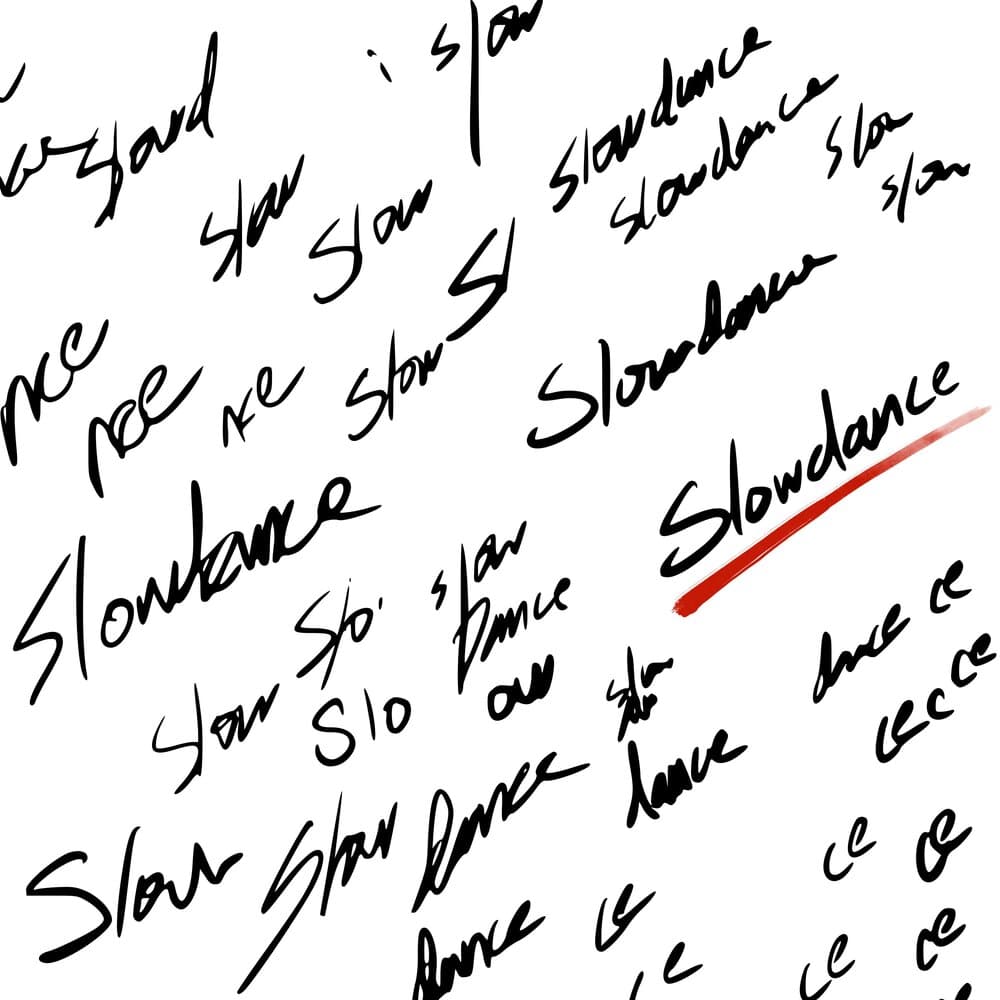 Slow
Slowd
Slowdance
Slowdance
Slow
Slow
Slow
Slow
Sl
Slow
Slowdance
nce
nce
nce
Slowdance
Slowdance
Slo
Slow
Dance
Slow
Slo
ow
dance
ce
ce
ce
c
dance
Slow
Slow
Dance
ce
ce
Dance
ce
ce
ce
ce